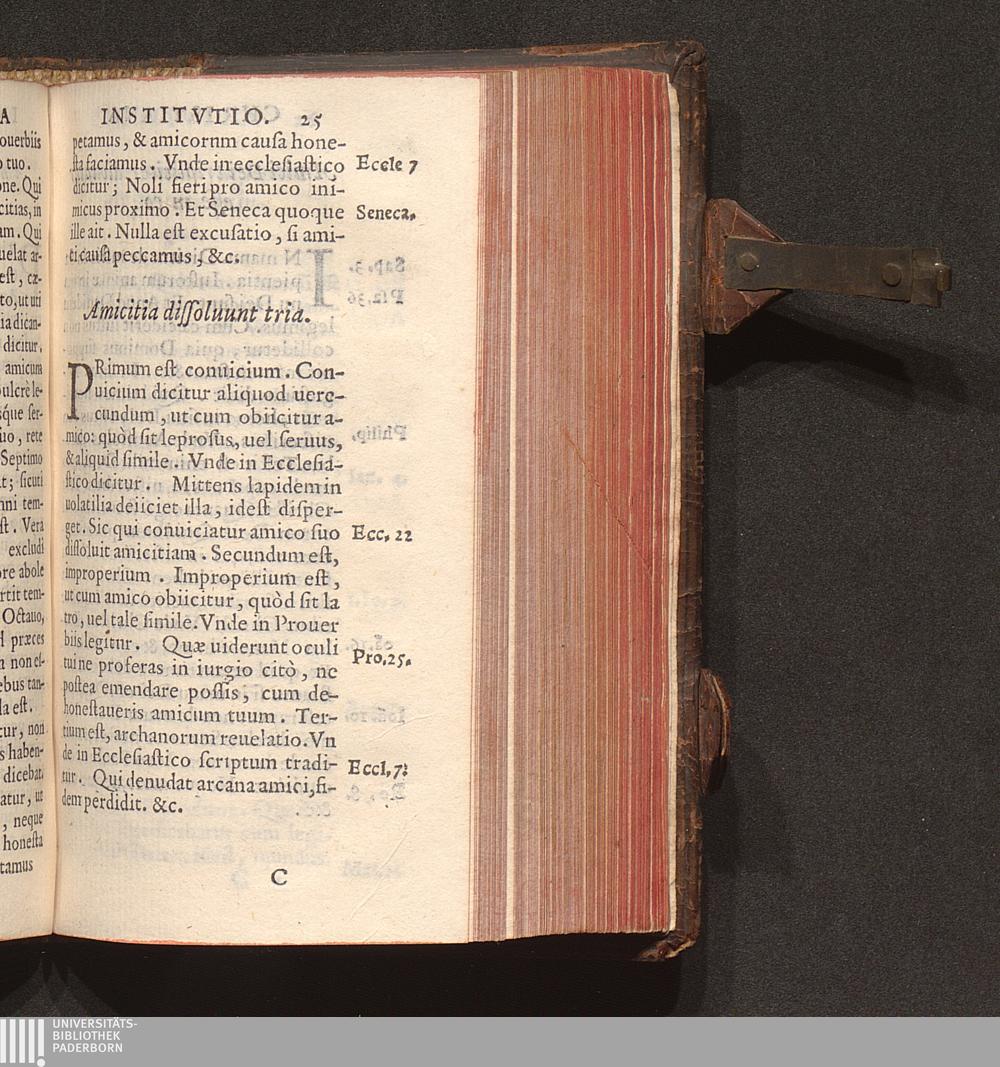 A
ouerbiis
o tuo.
one. Qui
citias, in
am. Qui
uelat ar-
est, cæ-
to, ut uti
ia dican-
dicitur,
amicum
pulcrè le-
sque ser-
suo, rete
Septimo
at; sicuti
mni tem-
st. Vera
excludi
ore abole
rtit tem-
Octauo,
d præces
a non es-
ebus tan-
la est.
tur, non
s haben-
dicebat,
atur, ut
, neque
honesta
tamus
INSTITVTIO. 25
petamus, & amicornm causa hone-
sta faciamus. Vnde in ecclesiastico
Eccle 7
dicitur; Noli fieri pro amico ini-
micus proximo. Et Seneca quoque
Seneca,
ille ait. Nulla est excusatio, si ami-
ti causa peccamus, &c.
Amicitia dissoluunt tria.
PRimum est conuicium. Con-
uicium dicitur aliquod uere-
cundum, ut cum obiicitur a-
mico: quòd sit leprosus, uel seruus,
& aliquid simile. Vnde in Ecclesia-
stico dicitur. Mittens lapidem in
uolatilia deiiciet illa, idest disper-
get. Sic qui conuiciatur amico suo
Ecc, 22
dissoluit amicitiam. Secundum est,
improperium. Improperium est,
ut cum amico obiicitur, quòd sit la
tro, uel tale simile. Vnde in Prouer
biis legitnr. Quæ uiderunt oculi
Pro.25.
tui ne proferas in iurgio citò, ne
postea emendare possis, cum de-
honestaueris amicum tuum. Ter-
tium est, archanorum reuelatio. Vn
de in Ecclesiastico scriptum tradi-
Eccl,7:
tur. Qui denudat arcana amici, fi-
dem perdidit. &c.
C
UNIVERSITÄTS-
BIBLIOTHEK
PADERBORN